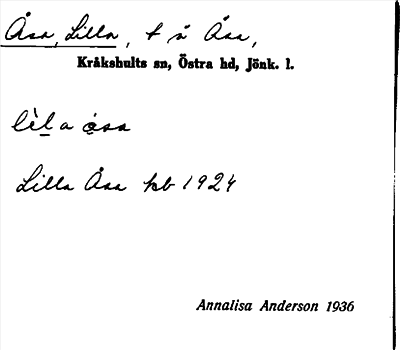 Åsa, Lilla, t å Åsa,
Kråkshults sn, Östra hd, Jönk. l.
lìl a åsa
Lilla Åsa kb 1924
Annalisa Anderson 1936